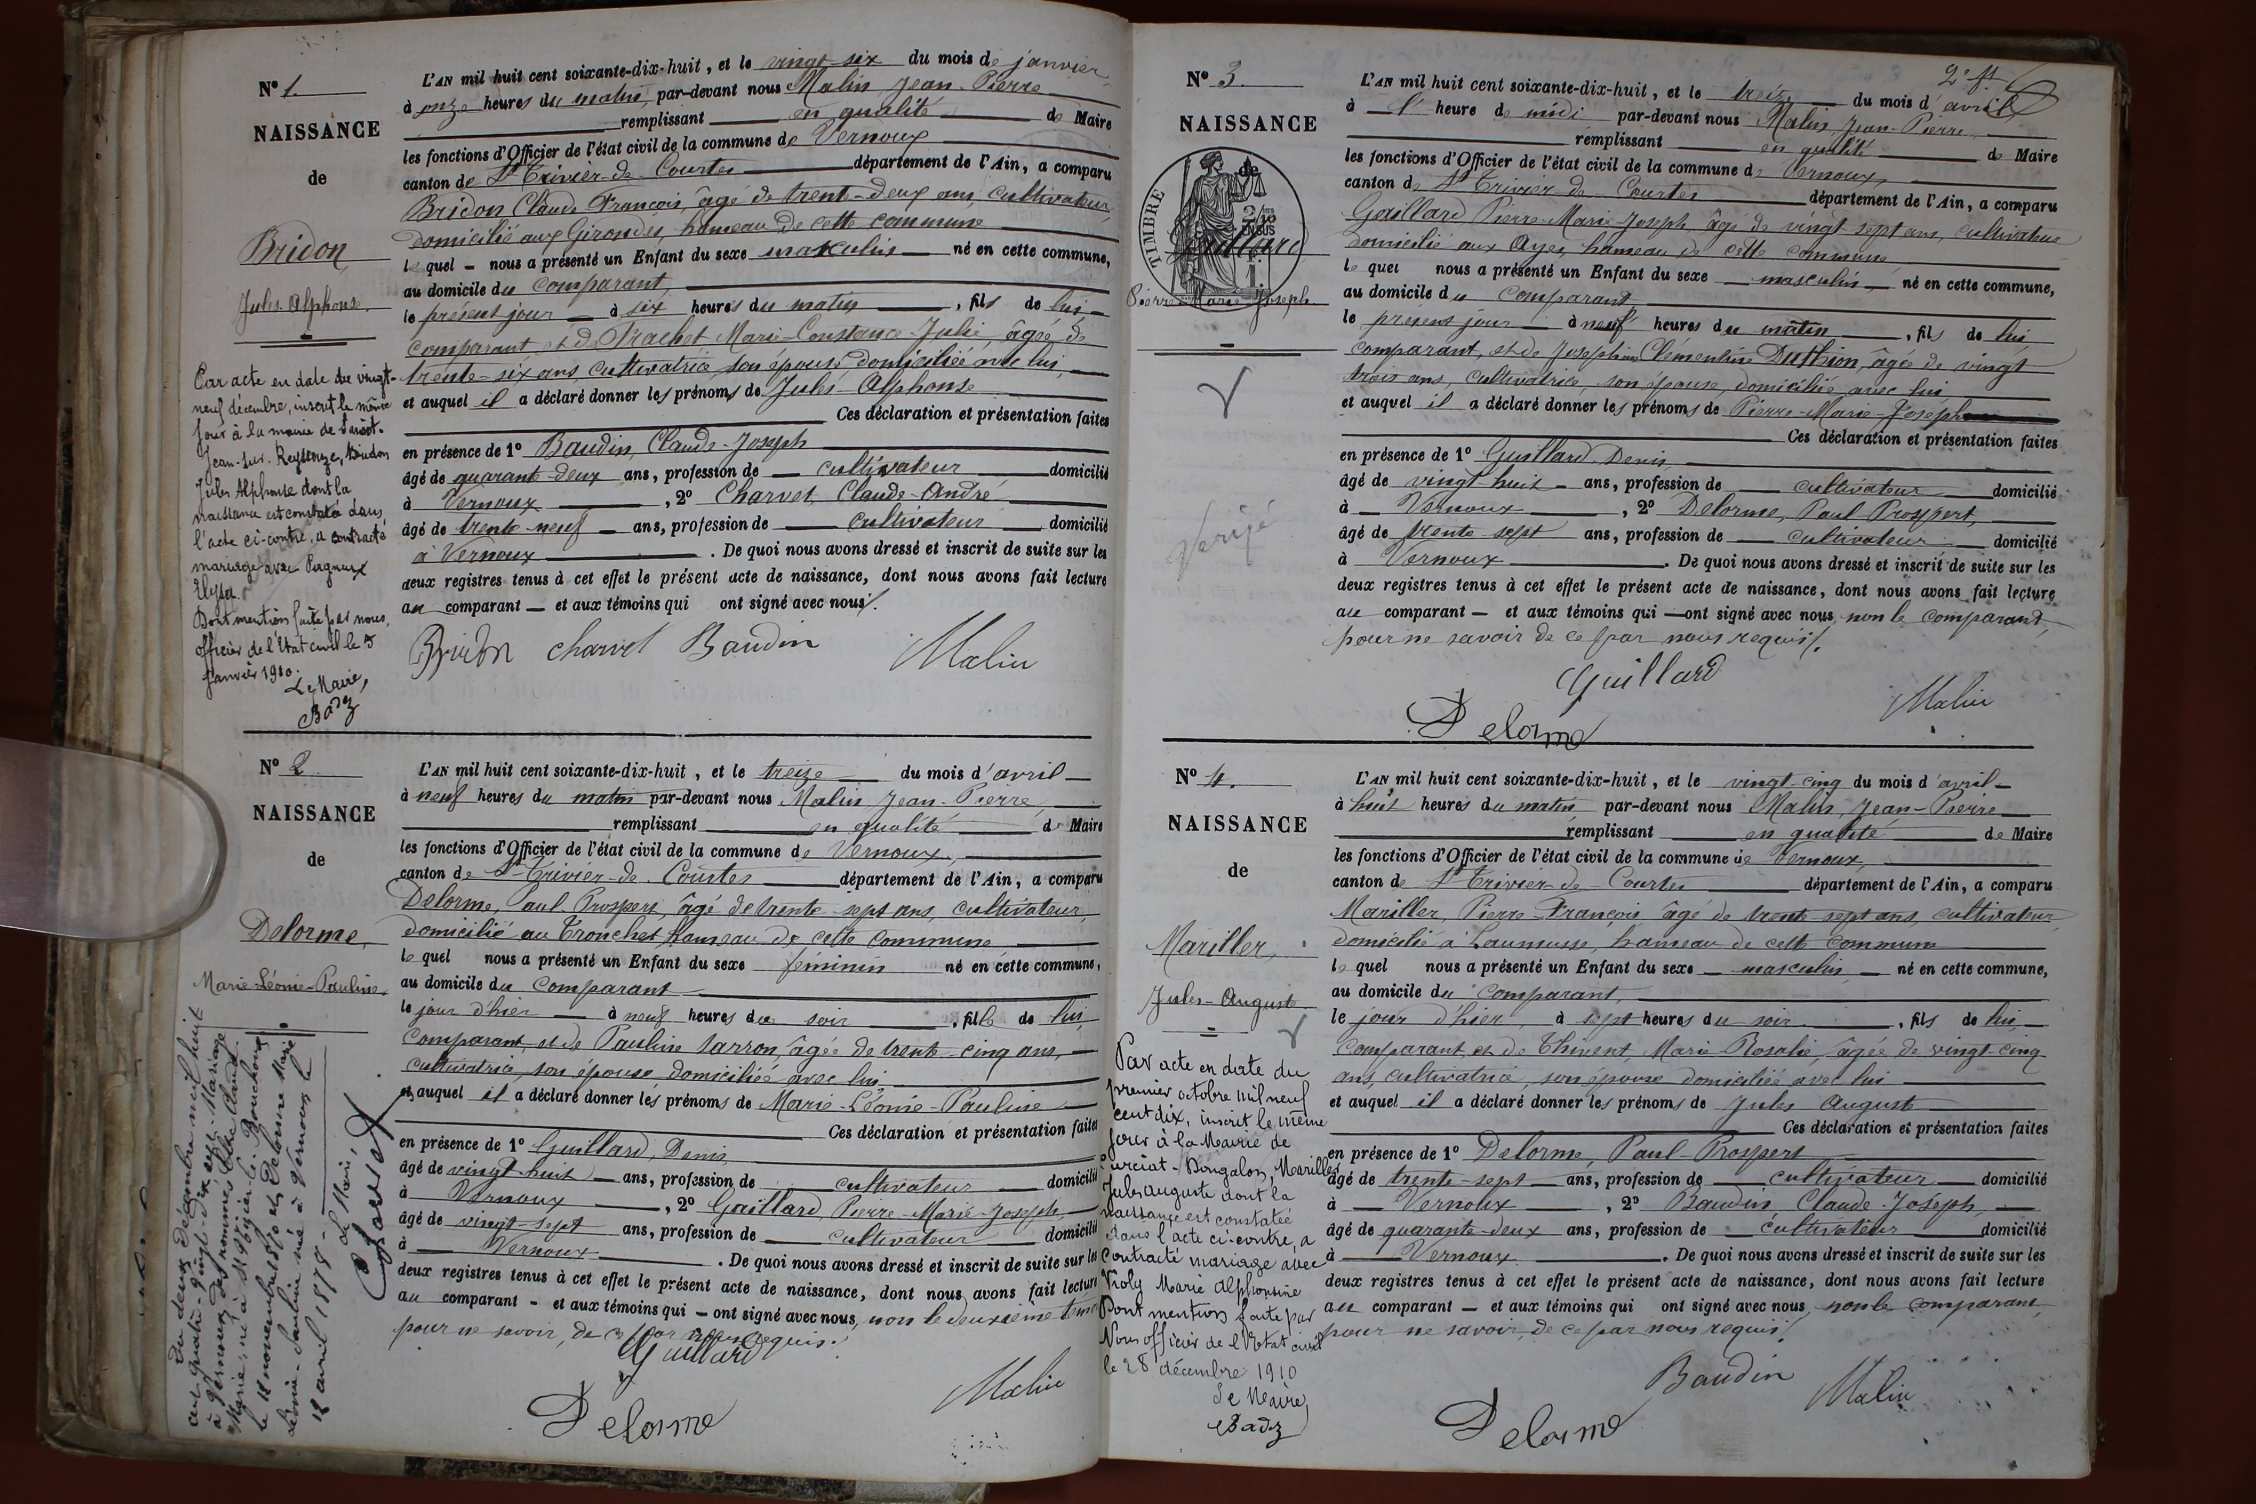 N° 1.
NAISSANCE
de
Bridon,
Jules Alphonse.
Par acte en date du vingt-
neuf décembre, inscrit le même
jour à la mairie de Saint-
Jean-sur-Reyssouze, Bridon
Jules Alphonse dont la
naissance est constatée dans
l'acte ci-contre, a contracté
mariage avec
Elysa.
Dont mention faite par nous,
officier de l'Etat civil le 5
janvier 1910.
Le Maire,
Badez
L'AN mil huit cent soixante-dix-huit, et le vingt-six du mois de janvier
à onze heures du matin, par-devant nous Malin Jean-Pierre
remplissant en qualité de Maire
les fonctions d'Officier de l'état civil de la commune de Vernoux
canton de St Trivier-de-Courtes département de l'Ain, a comparu
Bridon Claude François, âgé de trente-deux ans, cultivateur,
domicilié aux Girondes, hameau de cette commune
lequel nous a présenté un Enfant du sexe masculin né en cette commune,
au domicile du comparant,
le présent jour à six heures du matin, fils de lui
comparant et de Trachet Marie-Constance-Julie, âgée de
trente-six ans, cultivatrice, son épouse, domiciliée avec lui,
et auquel il a déclaré donner les prénoms de Jules-Alphonse
Ces déclaration et présentation faites
en présence de 1° Baudin, Claude-Joseph
âgé de quarante-deux ans, profession de cultivateur domicilié
à Vernoux, 2° Charvet Claude-André
âgé de trente-neuf ans, profession de cultivateur domicilié
à Vernoux. De quoi nous avons dressé et inscrit de suite sur les
deux registres tenus à cet effet le présent acte de naissance, dont nous avons fait lecture
au comparant et aux témoins qui ont signé avec nous.
Bridon Charvet Baudin Malin
N° 2
NAISSANCE
de
Delorme,
Marie-Léonie-Pauline.
Du deux décembre mil huit
cent quatre-vingt-dix Mariage
à Vernoux des nommés Claude
Marie, né à St Bouchoux
le 12 novembre 1870 et Delorme Marie
Léonie-Pauline née à Vernoux le
12 avril 1878
Le Maire,
Charvet
L'AN mil huit cent soixante-dix-huit, et le treize du mois d'avril
à neuf heures du matin par-devant nous Malin Jean-Pierre
remplissant en qualité de Maire
les fonctions d'Officier de l'état civil de la commune de Vernoux,
canton de St Trivier-de-Courtes département de l'Ain, a comparu
Delorme, Paul-Prospert, âgé de trente-sept ans, cultivateur,
domicilié au Tronchet hameau de cette commune
lequel nous a présenté un Enfant du sexe féminin né en cette commune,
au domicile du comparant
le jour d'hier à neuf heures du soir, fille de lui
comparant, et de Pauline Sarron, âgée de trente-cinq ans,
cultivatrice, son épouse, domiciliée avec lui
et auquel il a déclaré donner les prénoms de Marie-Léonie-Pauline
Ces déclaration et présentation faites
en présence de 1° Guillard, Denis
âgé de vingt-huit ans, profession de cultivateur domicilié
à Vernoux, 2° Gaillard, Pierre-Marie-Joseph,
âgé de vingt-sept ans, profession de cultivateur domicilié
à Vernoux. De quoi nous avons dressé et inscrit de suite sur les
deux registres tenus à cet effet le présent acte de naissance, dont nous avons fait lecture
au comparant et aux témoins qui ont signé avec nous, non le deuxième témoin
pour ne savoir, de ce par nous requis.
Guillard
Delorme Malin
2e ft
N° 3.
NAISSANCE
de
TIMBRE
2/10mes EN SUS
Gaillard
Pierre-Marie-Joseph
Verifié
L'AN mil huit cent soixante-dix-huit, et le treize du mois d'avril
à l' heure de midi par-devant nous Malin Jean-Pierre
remplissant en qualité de Maire
les fonctions d'Officier de l'état civil de la commune de Vernoux,
canton de St Trivier de Courtes département de l'Ain, a comparu
Gaillard Pierre-Marie-Joseph, âgé de vingt-sept ans, cultivateur
domicilié aux Ayes, hameau de cette commune
lequel nous a présenté un Enfant du sexe masculin né en cette commune,
au domicile du comparant
le présent jour à neuf heures du matin, fils de lui
comparant, et de Joséphine Clémentine Duthion, âgée de vingt
trois ans, cultivatrice, son épouse, domiciliée avec lui
et auquel il a déclaré donner les prénoms de Pierre-Marie-Joseph
Ces déclaration et présentation faites
en présence de 1° Guillard Denis
âgé de vingt huit ans, profession de cultivateur domicilié
à Vernoux, 2° Delorme, Paul Prospert,
âgé de trente-sept ans, profession de cultivateur domicilié
à Vernoux. De quoi nous avons dressé et inscrit de suite sur les
deux registres tenus à cet effet le présent acte de naissance, dont nous avons fait lecture
au comparant et aux témoins qui ont signé avec nous, non le comparant,
pour ne savoir de ce par nous requis.
Guillard
Delorme Malin
N° 4.
NAISSANCE
de
Mariller,
Jules-Auguste
Par acte en date du
premier octobre mil neuf
cent dix, inscrit le même
jour à la Mairie de
Curciat-Dongalon, Mariller
Jules Auguste dont la
naissance est constatée
dans l'acte ci-contre, a
contracté mariage avec
Violy Marie Alphonsine
Dont mention faite par
Nous officier de l'Etat civil
le 28 décembre 1910
Le Maire,
Badez
L'AN mil huit cent soixante-dix-huit, et le vingt-cinq du mois d'avril
à huit heures du matin par-devant nous Malin, Jean-Pierre
remplissant en qualité de Maire
les fonctions d'Officier de l'état civil de la commune de Vernoux,
canton de St Trivier-de-Courtes département de l'Ain, a comparu
Mariller, Pierre-François âgé de trente-sept ans, cultivateur
domicilié à Laumusse, hameau de cette commune
lequel nous a présenté un Enfant du sexe masculin né en cette commune,
au domicile du comparant,
le jour d'hier, à sept heures du soir, fils de lui
comparant et de Thivent, Marie Rosalie, âgée de vingt-cinq
ans, cultivatrice, son épouse domiciliée avec lui
et auquel il a déclaré donner les prénoms de Jules Auguste
Ces déclaration et présentation faites
en présence de 1° Delorme, Paul-Prospert
âgé de trente-sept ans, profession de cultivateur domicilié
à Vernoux, 2° Baudin, Claude-Joseph,
âgé de quarante-deux ans, profession de cultivateur domicilié
à Vernoux. De quoi nous avons dressé et inscrit de suite sur les
deux registres tenus à cet effet le présent acte de naissance, dont nous avons fait lecture
au comparant et aux témoins qui ont signé avec nous, non le comparant,
pour ne savoir, de ce par nous requis.
Baudin Malin
Delorme